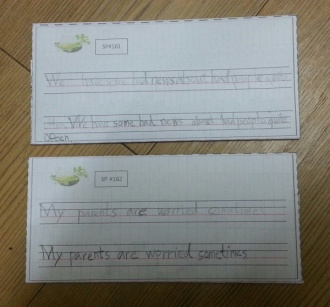 SP#161
We have some bad news about bad people quite
We have some bad news about bad people quite
often.
SP #162
My parents are worried sometimes
My parents are worried sometimes